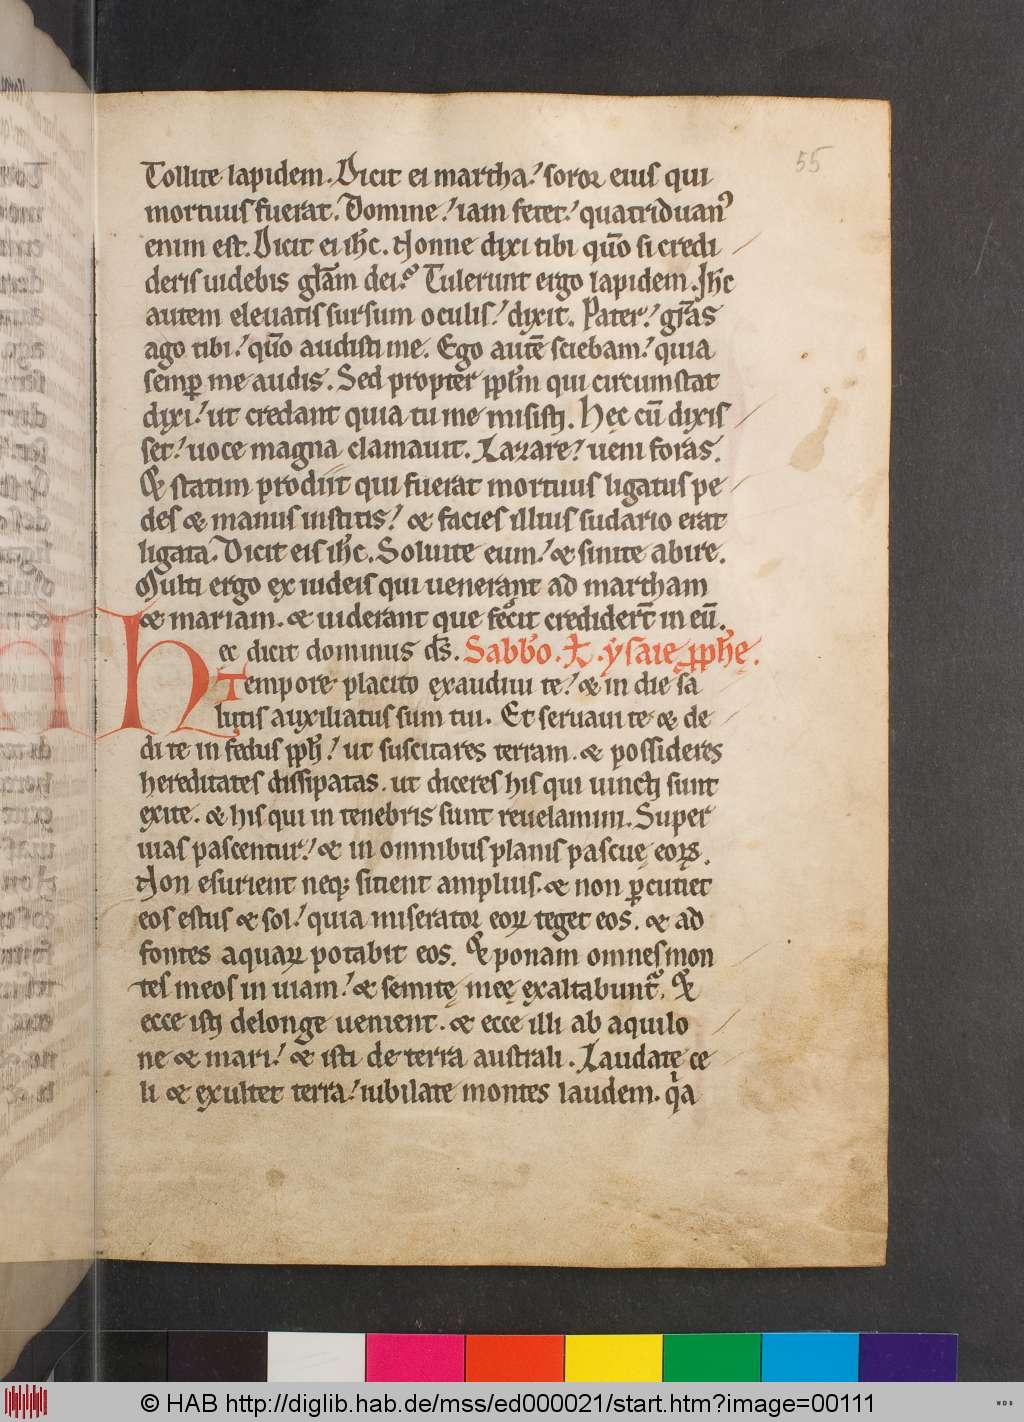 55
Tollite lapidem. Dicit ei martha! soror eius qui
mortuus fuerat. Domine! iam fetet! quatriduanꝰ
enim est. Dicit ei ih̅c. Nonne dixi tibi qm̅o si credi
deris uidebis gl̅am dei? Tulerunt ergo lapidem. Ih̅c
autem eleuatis sursum oculis! dixit. Pater! gr̅as
ago tibi! qm̅o audisti me. Ego aute̅ sciebam! quia
semꝑ me audis. Sed propter ppl̅m qui circumstat
dixi! ut credant quia tu me misisti. Hec cu̅ dixis
set! uoce magna clamauit. Lazare! ueni foras.
& statim prodiit qui fuerat mortuus ligatus pe
des & manus institis! & facies illius sudario erat
ligata. Dicit eis ih̅c. Soluite eum! & sinite abire.
Multi ergo ex iudeis qui uenerant ad martham
& mariam. & uiderant que fecit crediderc̅t in eu̅.
Hec dicit dominus ds̅. Sabb̅o. ysaie pph̅ę.
Tempore placito exaudiui te! & in die sa
lutis auxiliatus sum tui. Et seruaui te & de
di te in fedus pph̅! ut suscitares terram. & possideres
hereditates dissipatas. ut diceres his qui uincti sunt
exite. & his qui in tenebris sunt reuelamini. Super
uias pascentur! & in omnibus planis pascuę eoꝝ.
Non esurient neq; sitient amplius. & non ꝑcutiet
eos estus & sol! quia miserator eoꝝ reget eos. & ad
fontes aquaꝝ potabit eos. & ponam omnes mon
tes meos in uiam! & semitę meę exaltabunt᷑. &
ecce isti delonge uenient. & ecce illi ab aquilo
ne & mari! & isti de terra australi. Laudate ce
li & exultet terra! iubilate montes laudem. qͥa
© HAB http://diglib.hab.de/mss/ed000021/start.htm?image=00111